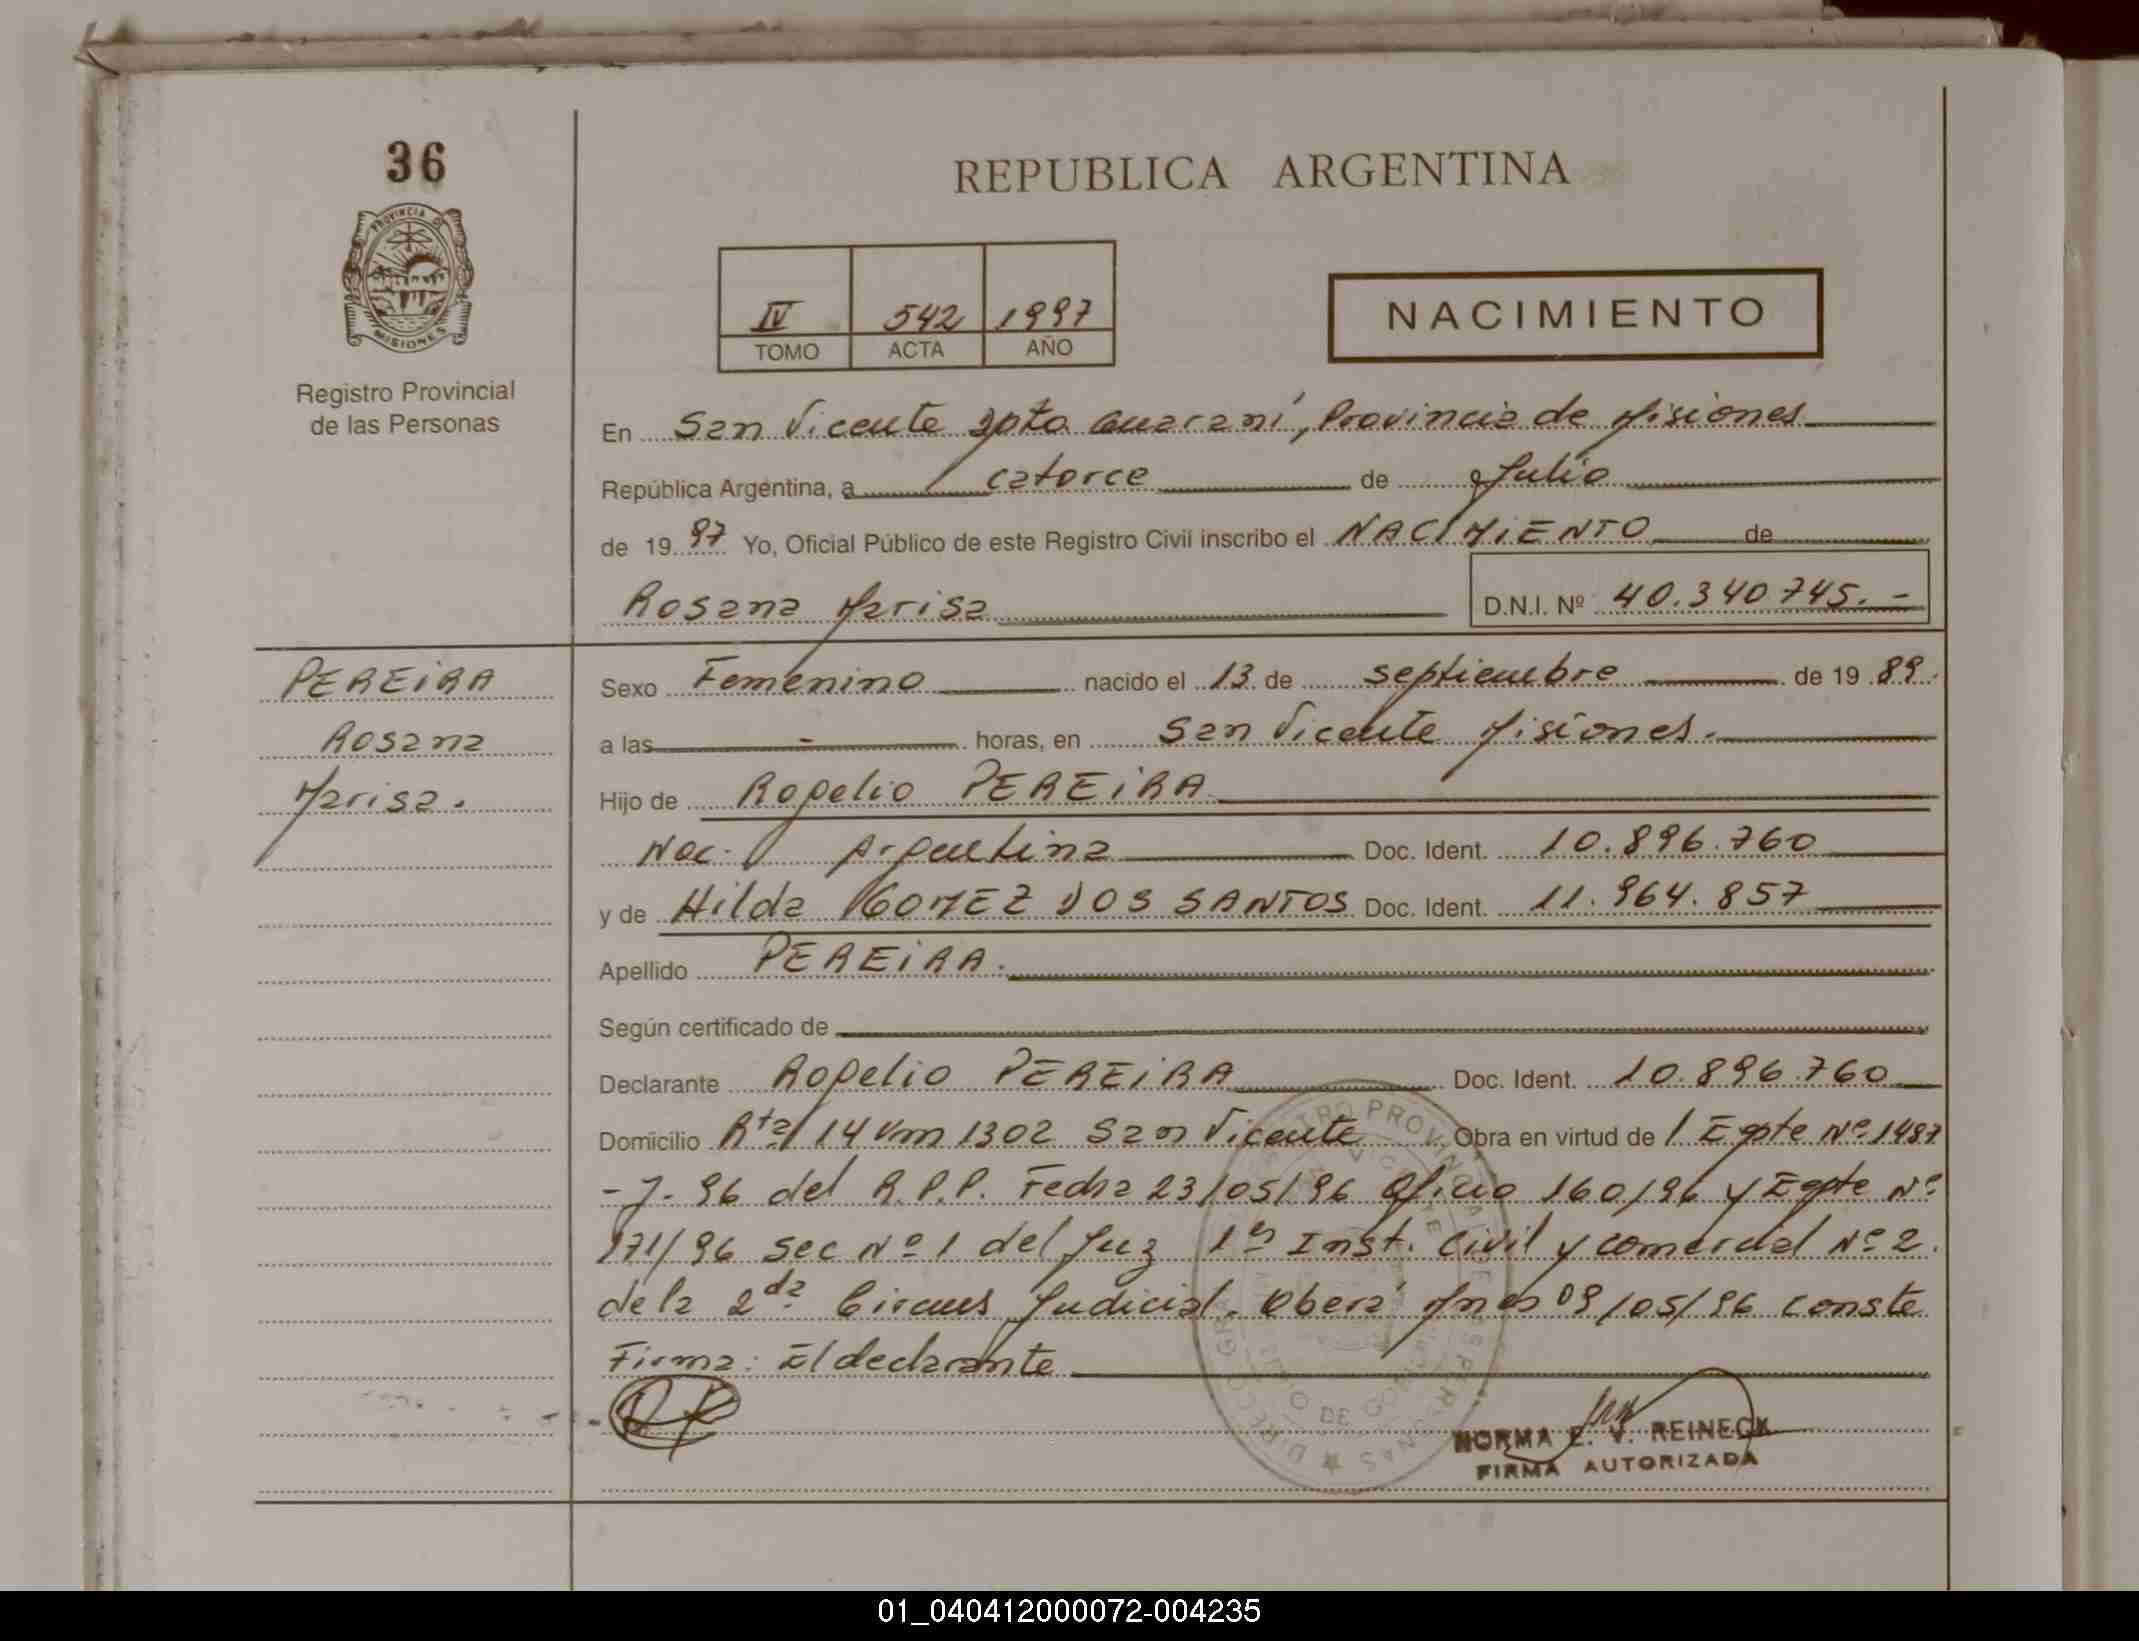 36
REPUBLICA ARGENTINA
PROVINCIA DE
MISIONES
IV 542 1997
TOMO ACTA AÑO
NACIMIENTO
Registro Provincial
de las Personas
En San Vicente Dpto Guaraní, Provincia de Misiones
República Argentina, a catorce de Julio
de 1997 Yo, Oficial Público de este Registro Civil inscribo el NACIMIENTO de
Rosana Marisa D.N.I. Nº 40.340.745.-
PEREIRA
Rosana
Marisa.
Sexo Femenino nacido el 13 de septiembre de 1989.
a las - horas, en San Vicente Misiones.-
Hijo de Rogelio PEREIRA
Nac. Argentina Doc. Ident. 10.896.760
y de Hilda GOMEZ DOS SANTOS Doc. Ident. 11.964.857
Apellido PEREIRA.
Según certificado de
Declarante Rogelio PEREIRA Doc. Ident. 10.896.760
Domicilio Rta 14 Km 1302 San Vicente Obra en virtud de Expte Nº 1487
-J-96 del R.P.P. Fecha 23/05/96 Oficio 160/96 y Expte Nº
171/96 Sec Nº 1 del Juz 1ª Inst. Civil y Comercial Nº 2
de la 2da Judicial. Oberá Mnes 09/05/96 conste
Firma: El declarante
NORMA E. V. REINECK
FIRMA AUTORIZADA
01_040412000072-004235